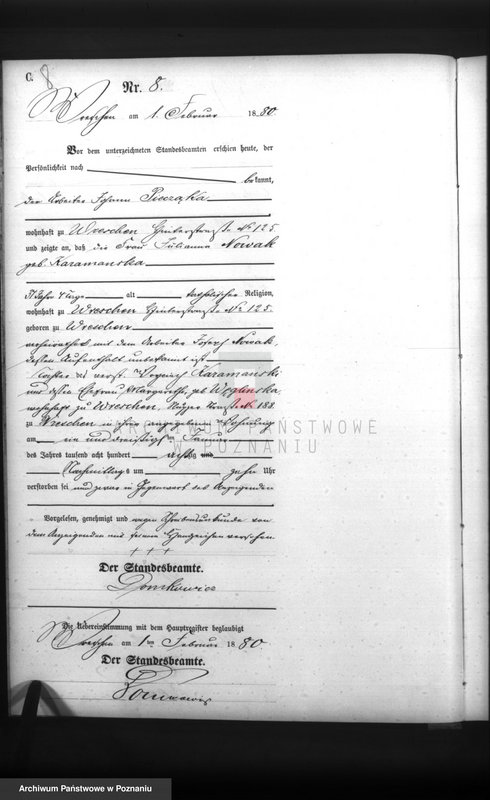 C. 8
Nr. 8.
Wreschen am 1. Februar 1880
Vor dem unterzeichneten Standesbeamten erschien heute, der
Persönlichkeit nach
bekannt,
der Arbeiter Johann Piecząka
wohnhaft zu Wreschen Hinterstraße No 125
und zeigte an, daß die Frau Julianna Nowak
geb. Karamanska
alt katholischer Religion,
wohnhaft zu Wreschen Hinterstraße No 125.
geboren zu Wreschen
verheirathet mit dem Arbeiter Joseph Nowak
dessen Aufenthalt unbekannt ist
Tochter des verst. Karamanski
und dessen Ehefrau Margarethe, geb.
wohnhaft zu Wreschen, No 188.
zu Wreschen in ihrer angegebenen Wohnung
am ein und dreißigsten Januar
des Jahres tausend acht hundert achtzig und
Nachmittags um zehn Uhr
verstorben sei und zwar in Gegenwart des Anzeigenden
Vorgelesen, genehmigt und wegen Schreibensunkunde von
dem Anzeigenden mit seinem Handzeichen versehen.
+ + +
Der Standesbeamte.
Die Uebereinstimmung mit dem Hauptregister beglaubigt
Wreschen am 1ten Februar 1880
Der Standesbeamte.
ARCHIWUM PAŃSTWOWE
W POZNANIU
Archiwum Państwowe w Poznaniu